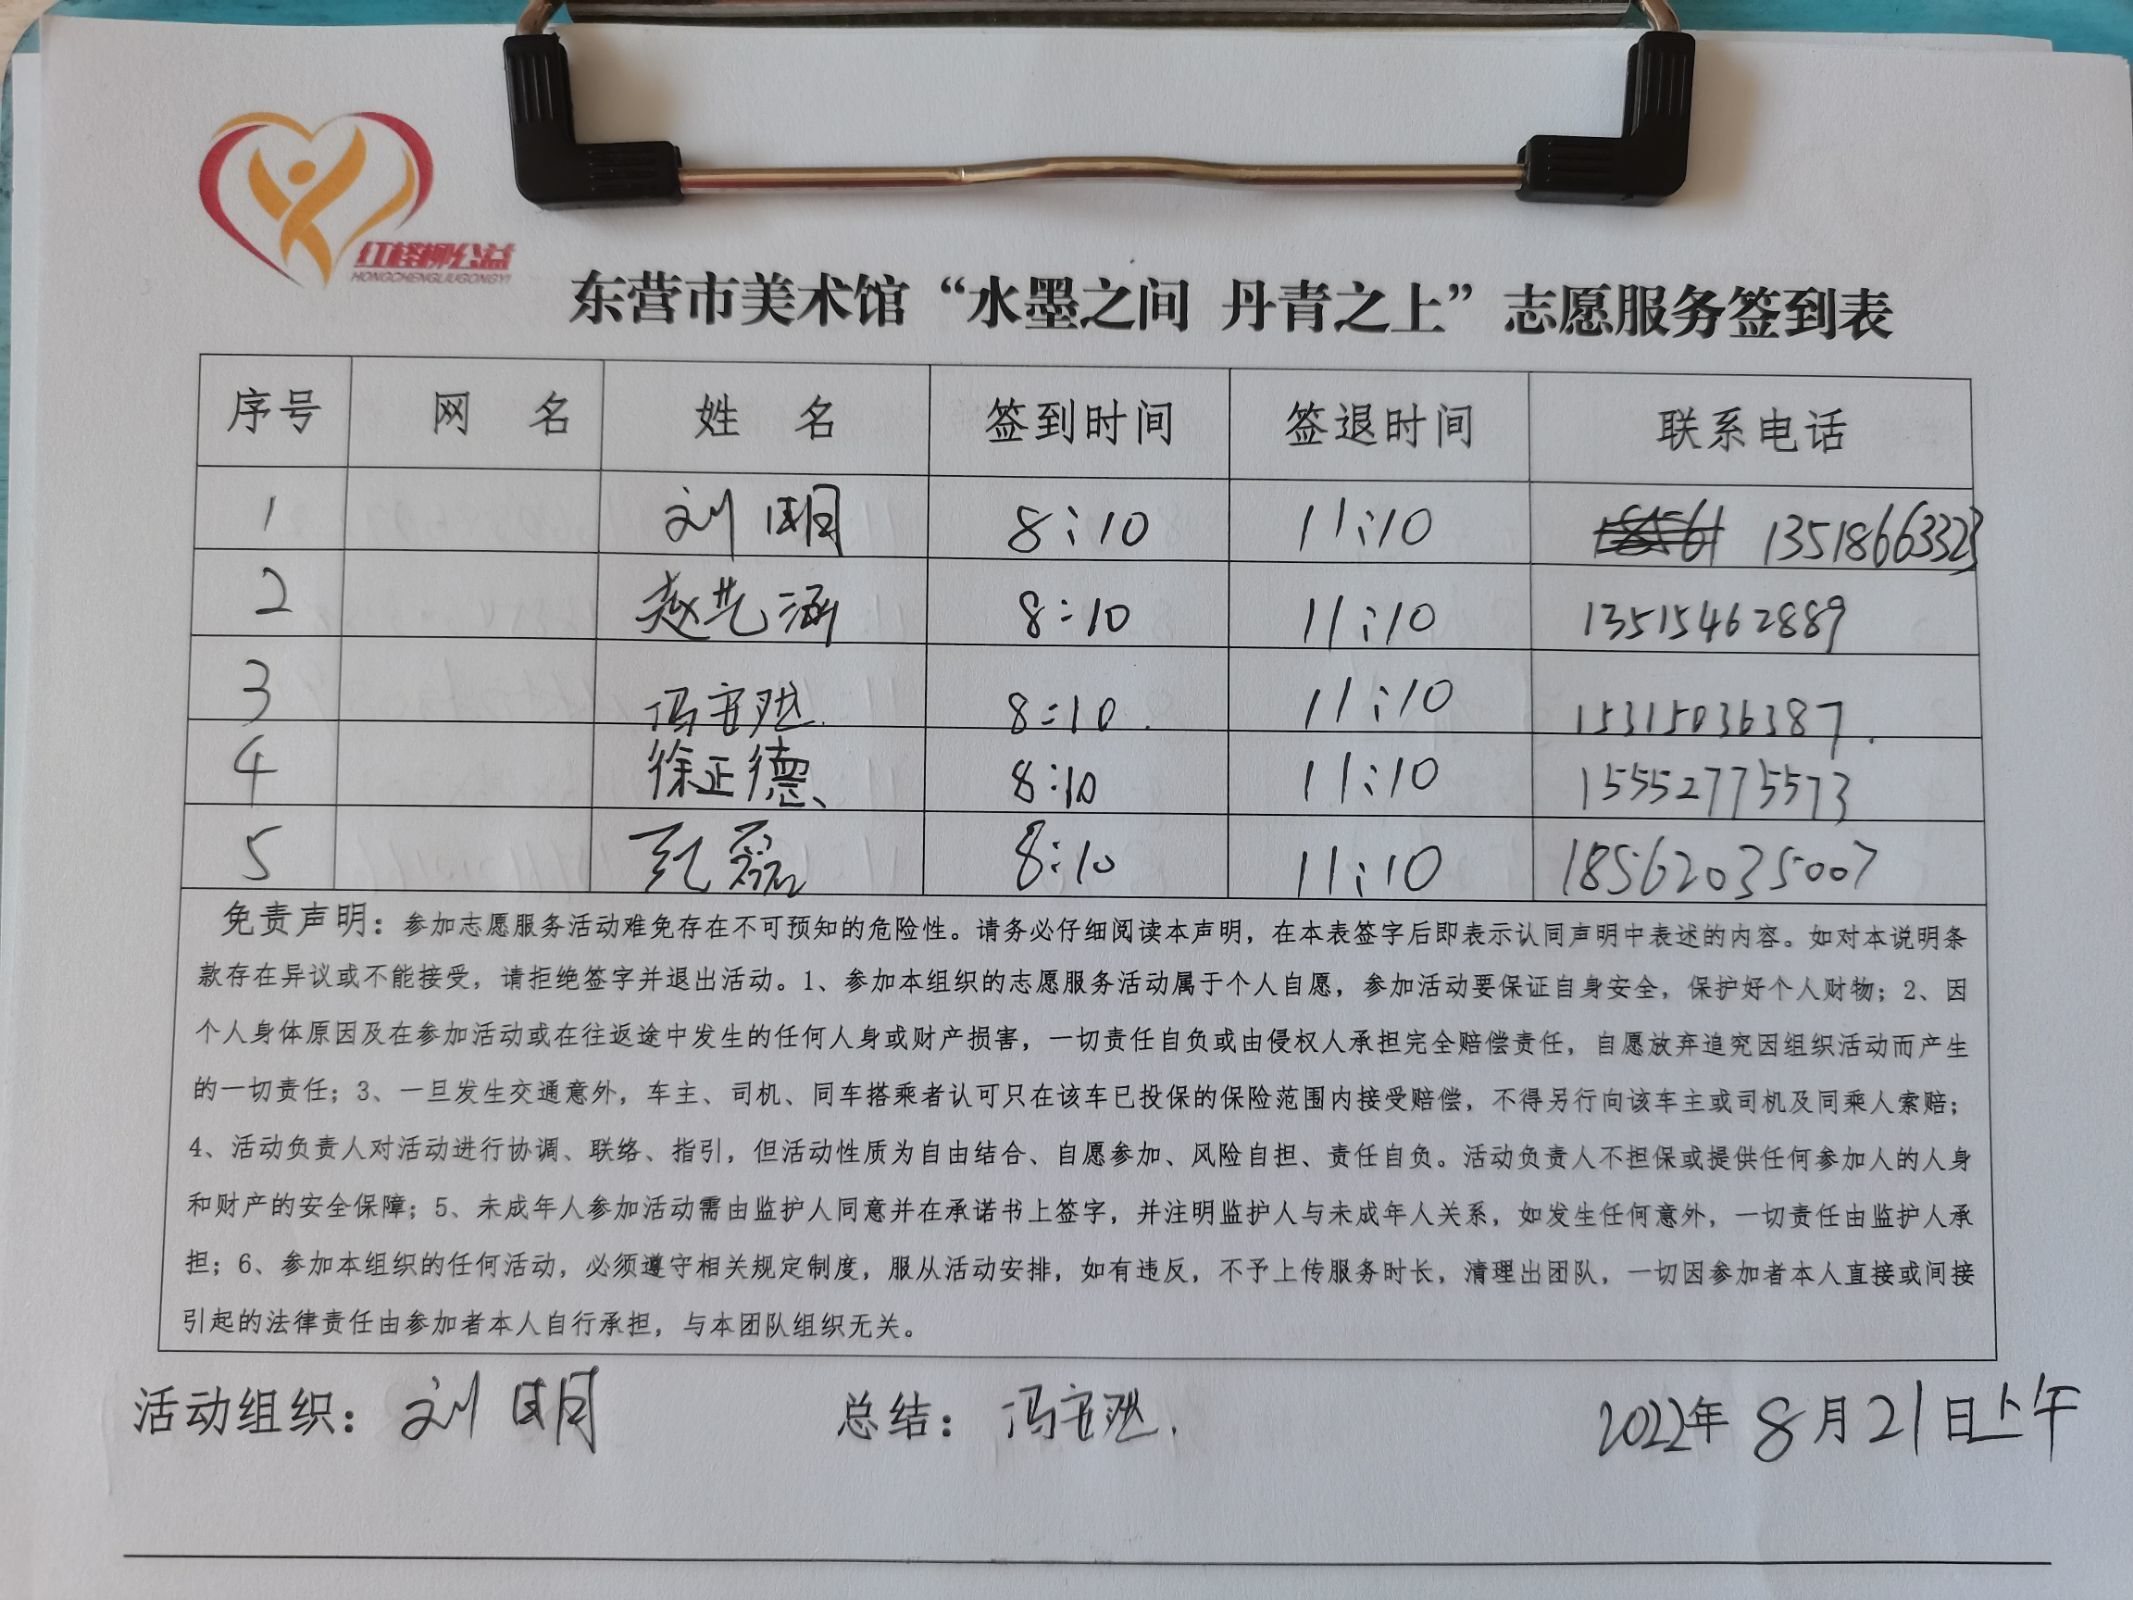 红柽柳公益
HONGCHENGLIUGONGYI
东营市美术馆“水墨之间 丹青之上”志愿服务签到表
序号 网 名 姓 名 签到时间 签退时间 联系电话
1 刘明 8:10 11:10 13518663323
2 赵艺涵 8:10 11:10 13515462889
3 冯 8:10 11:10 15315036387
4 徐正德 8:10 11:10 15552775573
5 磊 8:10 11:10 18562035007
免责声明：参加志愿服务活动难免存在不可预知的危险性。请务必仔细阅读本声明，在本表签字后即表示认同声明中表述的内容。如对本说明条
款存在异议或不能接受，请拒绝签字并退出活动。1、参加本组织的志愿服务活动属于个人自愿，参加活动要保证自身安全，保护好个人财物；2、因
个人身体原因及在参加活动或在往返途中发生的任何人身或财产损害，一切责任自负或由侵权人承担完全赔偿责任，自愿放弃追究因组织活动而产生
的一切责任；3、一旦发生交通意外，车主、司机、同车搭乘者认可只在该车已投保的保险范围内接受赔偿，不得另行向该车主或司机及同乘人索赔；
4、活动负责人对活动进行协调、联络、指引，但活动性质为自由结合、自愿参加、风险自担、责任自负。活动负责人不担保或提供任何参加人的人身
和财产的安全保障；5、未成年人参加活动需由监护人同意并在承诺书上签字，并注明监护人与未成年人关系，如发生任何意外，一切责任由监护人承
担；6、参加本组织的任何活动，必须遵守相关规定制度，服从活动安排，如有违反，不予上传服务时长，清理出团队，一切因参加者本人直接或间接
引起的法律责任由参加者本人自行承担，与本团队组织无关。
活动组织：刘明 总结：冯 2022年8月21日上午